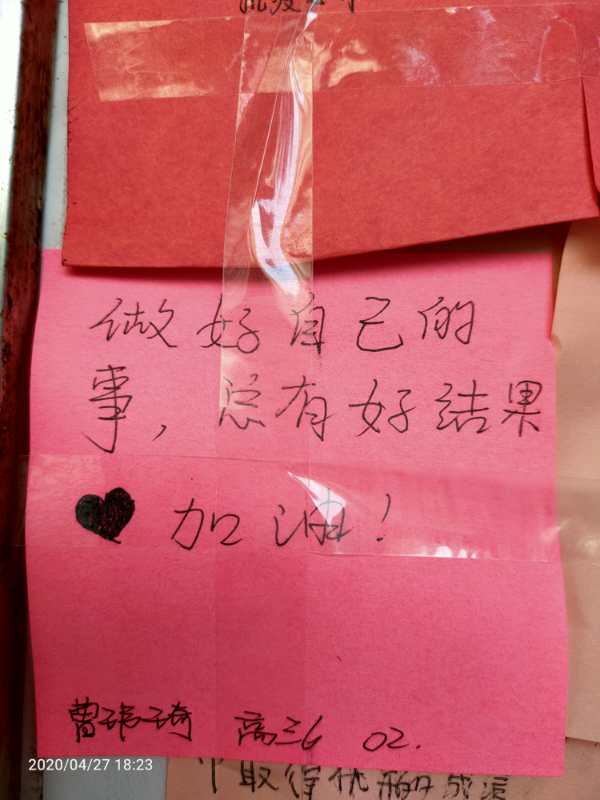 做好自己的
事，总有好结果
♥加油！
曹 琦 高三6 02.
2020/04/27 18:23
取得优 成